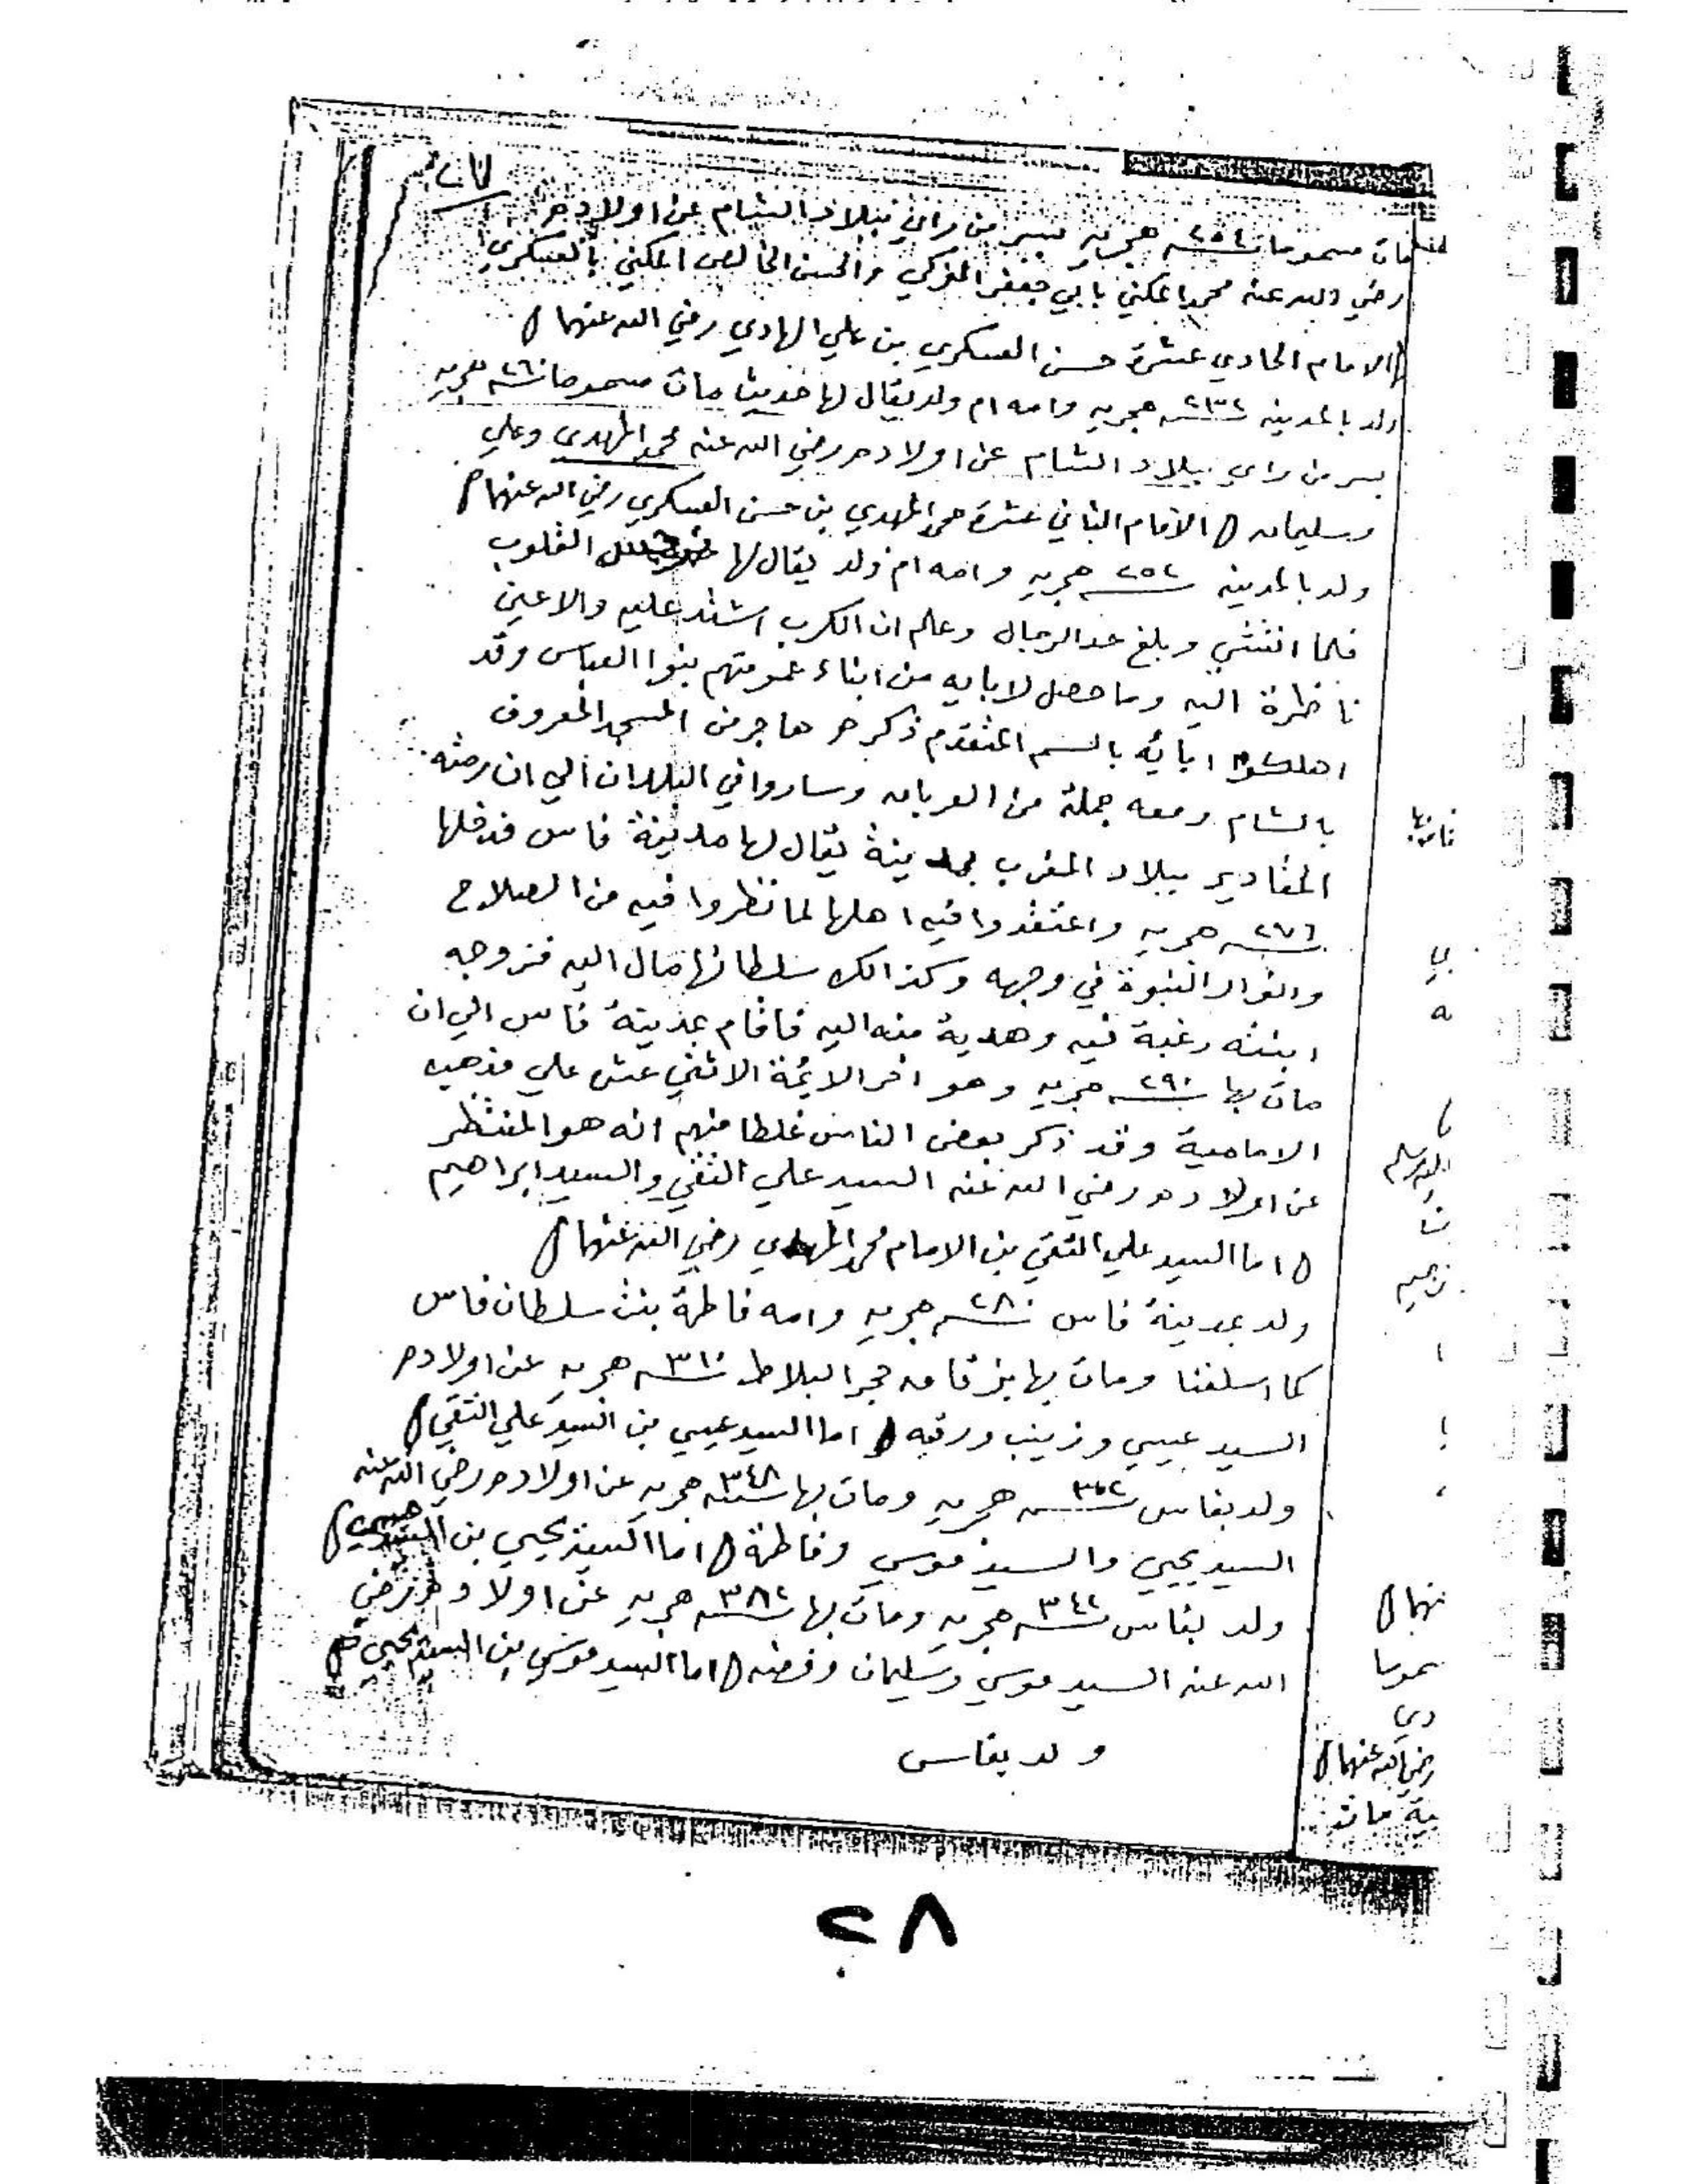 مات مسموما سنة ٢٥٤ هجريه بسر من راي ببلاد الشام عن اولاده
رضي الله عنه محمد المكني بابي جعفر المزكي والحسن الخالص المكني بالعسكري
الامام الحادي عشرة حسن العسكري بن علي الهادي رضي الله عنهما
ولد بالمدينه سنة ٢٣٢ هجريه وامه ام ولد يقال لها حديث مات مسموما سنة ٢٦٠ هجريه
بسر من راي ببلاد الشام عن اولاده رضي الله عنه محمد المهدي وعلي
وسليمان الامام الثاني عشرة محمد المهدي بن حسن العسكري رضي الله عنهما
ولد بالمدينه سنة ٢٥٢ هجريه وامه ام ولد يقال لها القلوب
فلما انتشي وبلغ حد الرجال وعلم ان الكرب اشتد عليه والاعين
ناظرة اليه وما حصل لابايه من ابناء عمومتهم بنوا العباس وقد
اهلكوا ابائه بالسم المتقدم ذكره هاجر من المسجد المعروف
بالشام ومعه جملة من العربان وساروا في البلدان الي ان رمته
المقادير ببلاد المغرب بمدينة يقال لها مدينة فاس فدخلها
سنة ٢٧٦ هجريه واعتقدوا فيه اهلها لما نظروا فيه من الصلاح
وانوار النبوة في وجهه وكذالك سلطانها مال اليه فزوجه
ابنته رغبة فيه وهدية منه اليه فاقام بمدينة فاس الي ان
مات بها سنة ٢٩٠ هجريه وهو اخر الايمة الاثني عش علي مذهب
الامامية وقد ذكر بعض الناس غلطا منهم انه هو المنتظر
عن اولاده رضي الله عنه السيد علي التقي والسيد ابراهيم
اما السيد علي التقي بن الامام محمد المهدي رضي الله عنهما
ولد بمدينة فاس سنة ٢٨٠ هجريه وامه فاطمة بنت سلطان فاس
كما اسلفنا ومات بها بزقاق حجر البلاط سنة ٣١٠ هجريه عن اولاده
السيد عيسي وزينب ورقيه اما السيد عيسي بن السيد علي التقي
ولد بفاس سنة هجريه ومات بها سنة ٣٤٨ هجريه عن اولاده رضي الله عنه
السيد يحيي والسيد موسي وفاطمة اما السيد يحيي بن السيد عيسي
ولد بفاس سنة ٣٤٢ هجريه ومات بها سنة ٣٨٢ هجريه عن اولاده رضي
الله عنه السيد موسي وسليمان وفضه اما السيد موسي بن السيد يحيي
ولد بفاس
نهما
موسا
دي
رضي الله عنهما
ية مات
٢٨